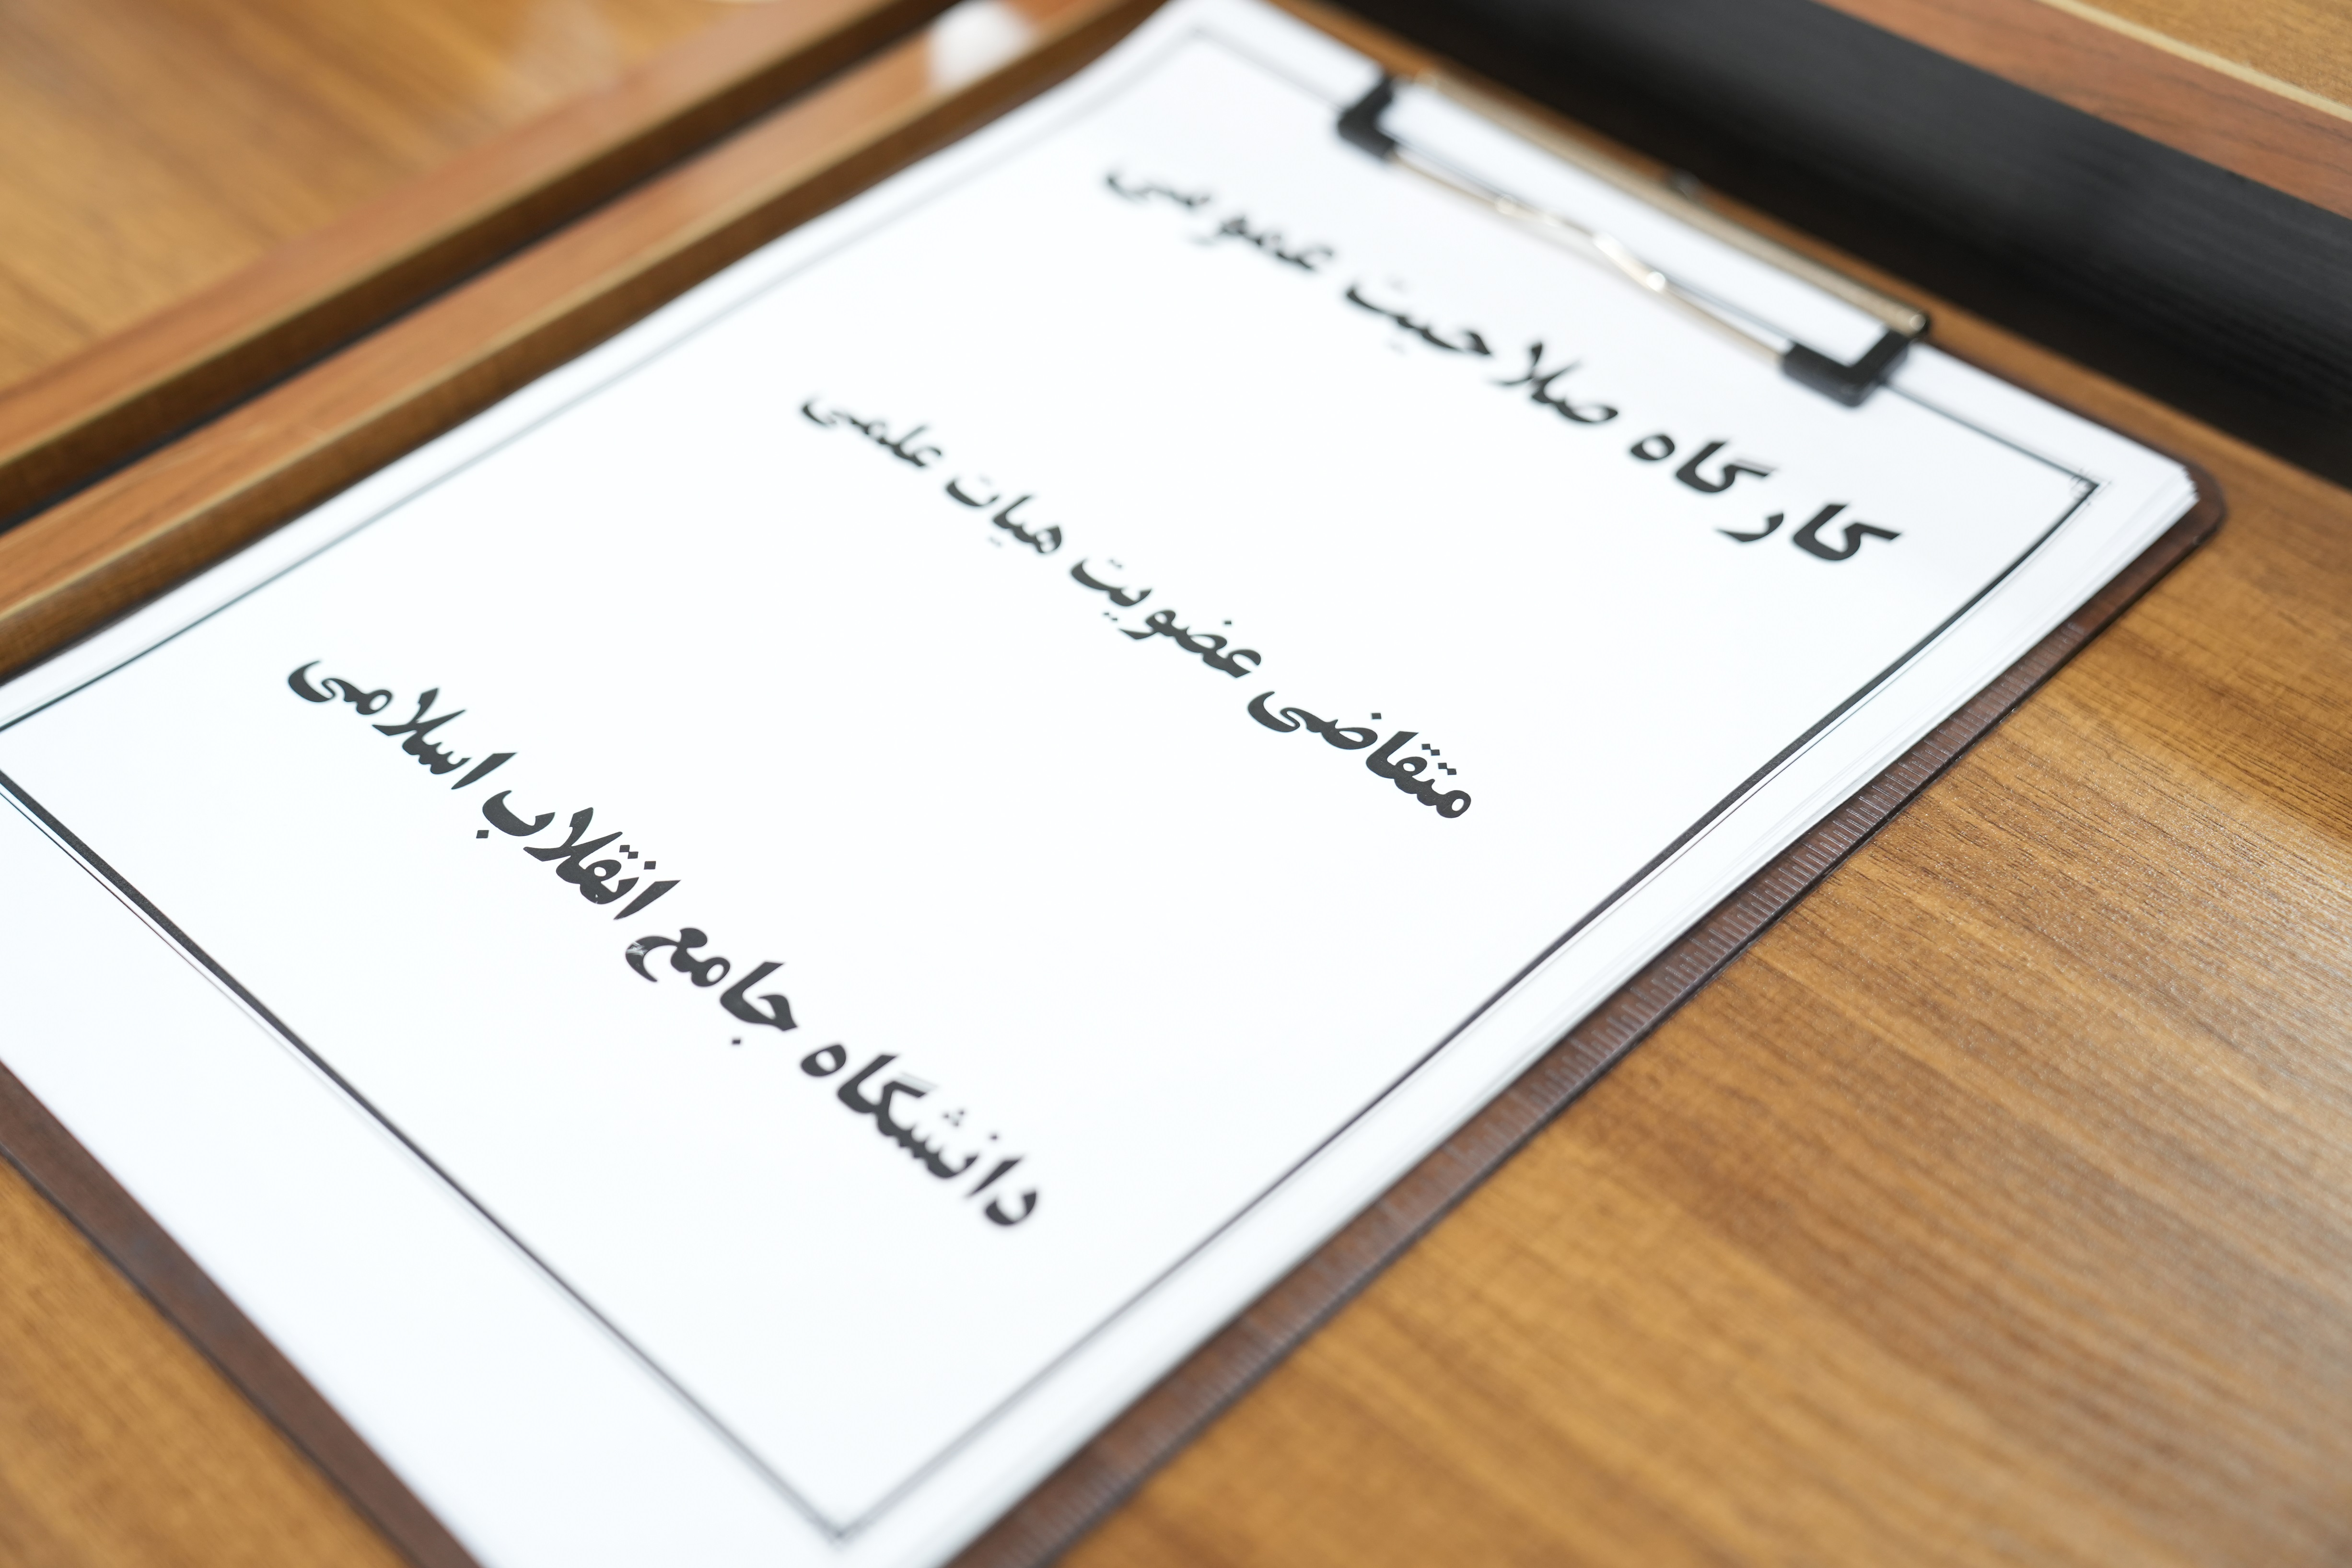 کارگاه صلاحیت عمومی
متقاضی عضویت هیات علمی
دانشگاه جامع انقلاب اسلامی